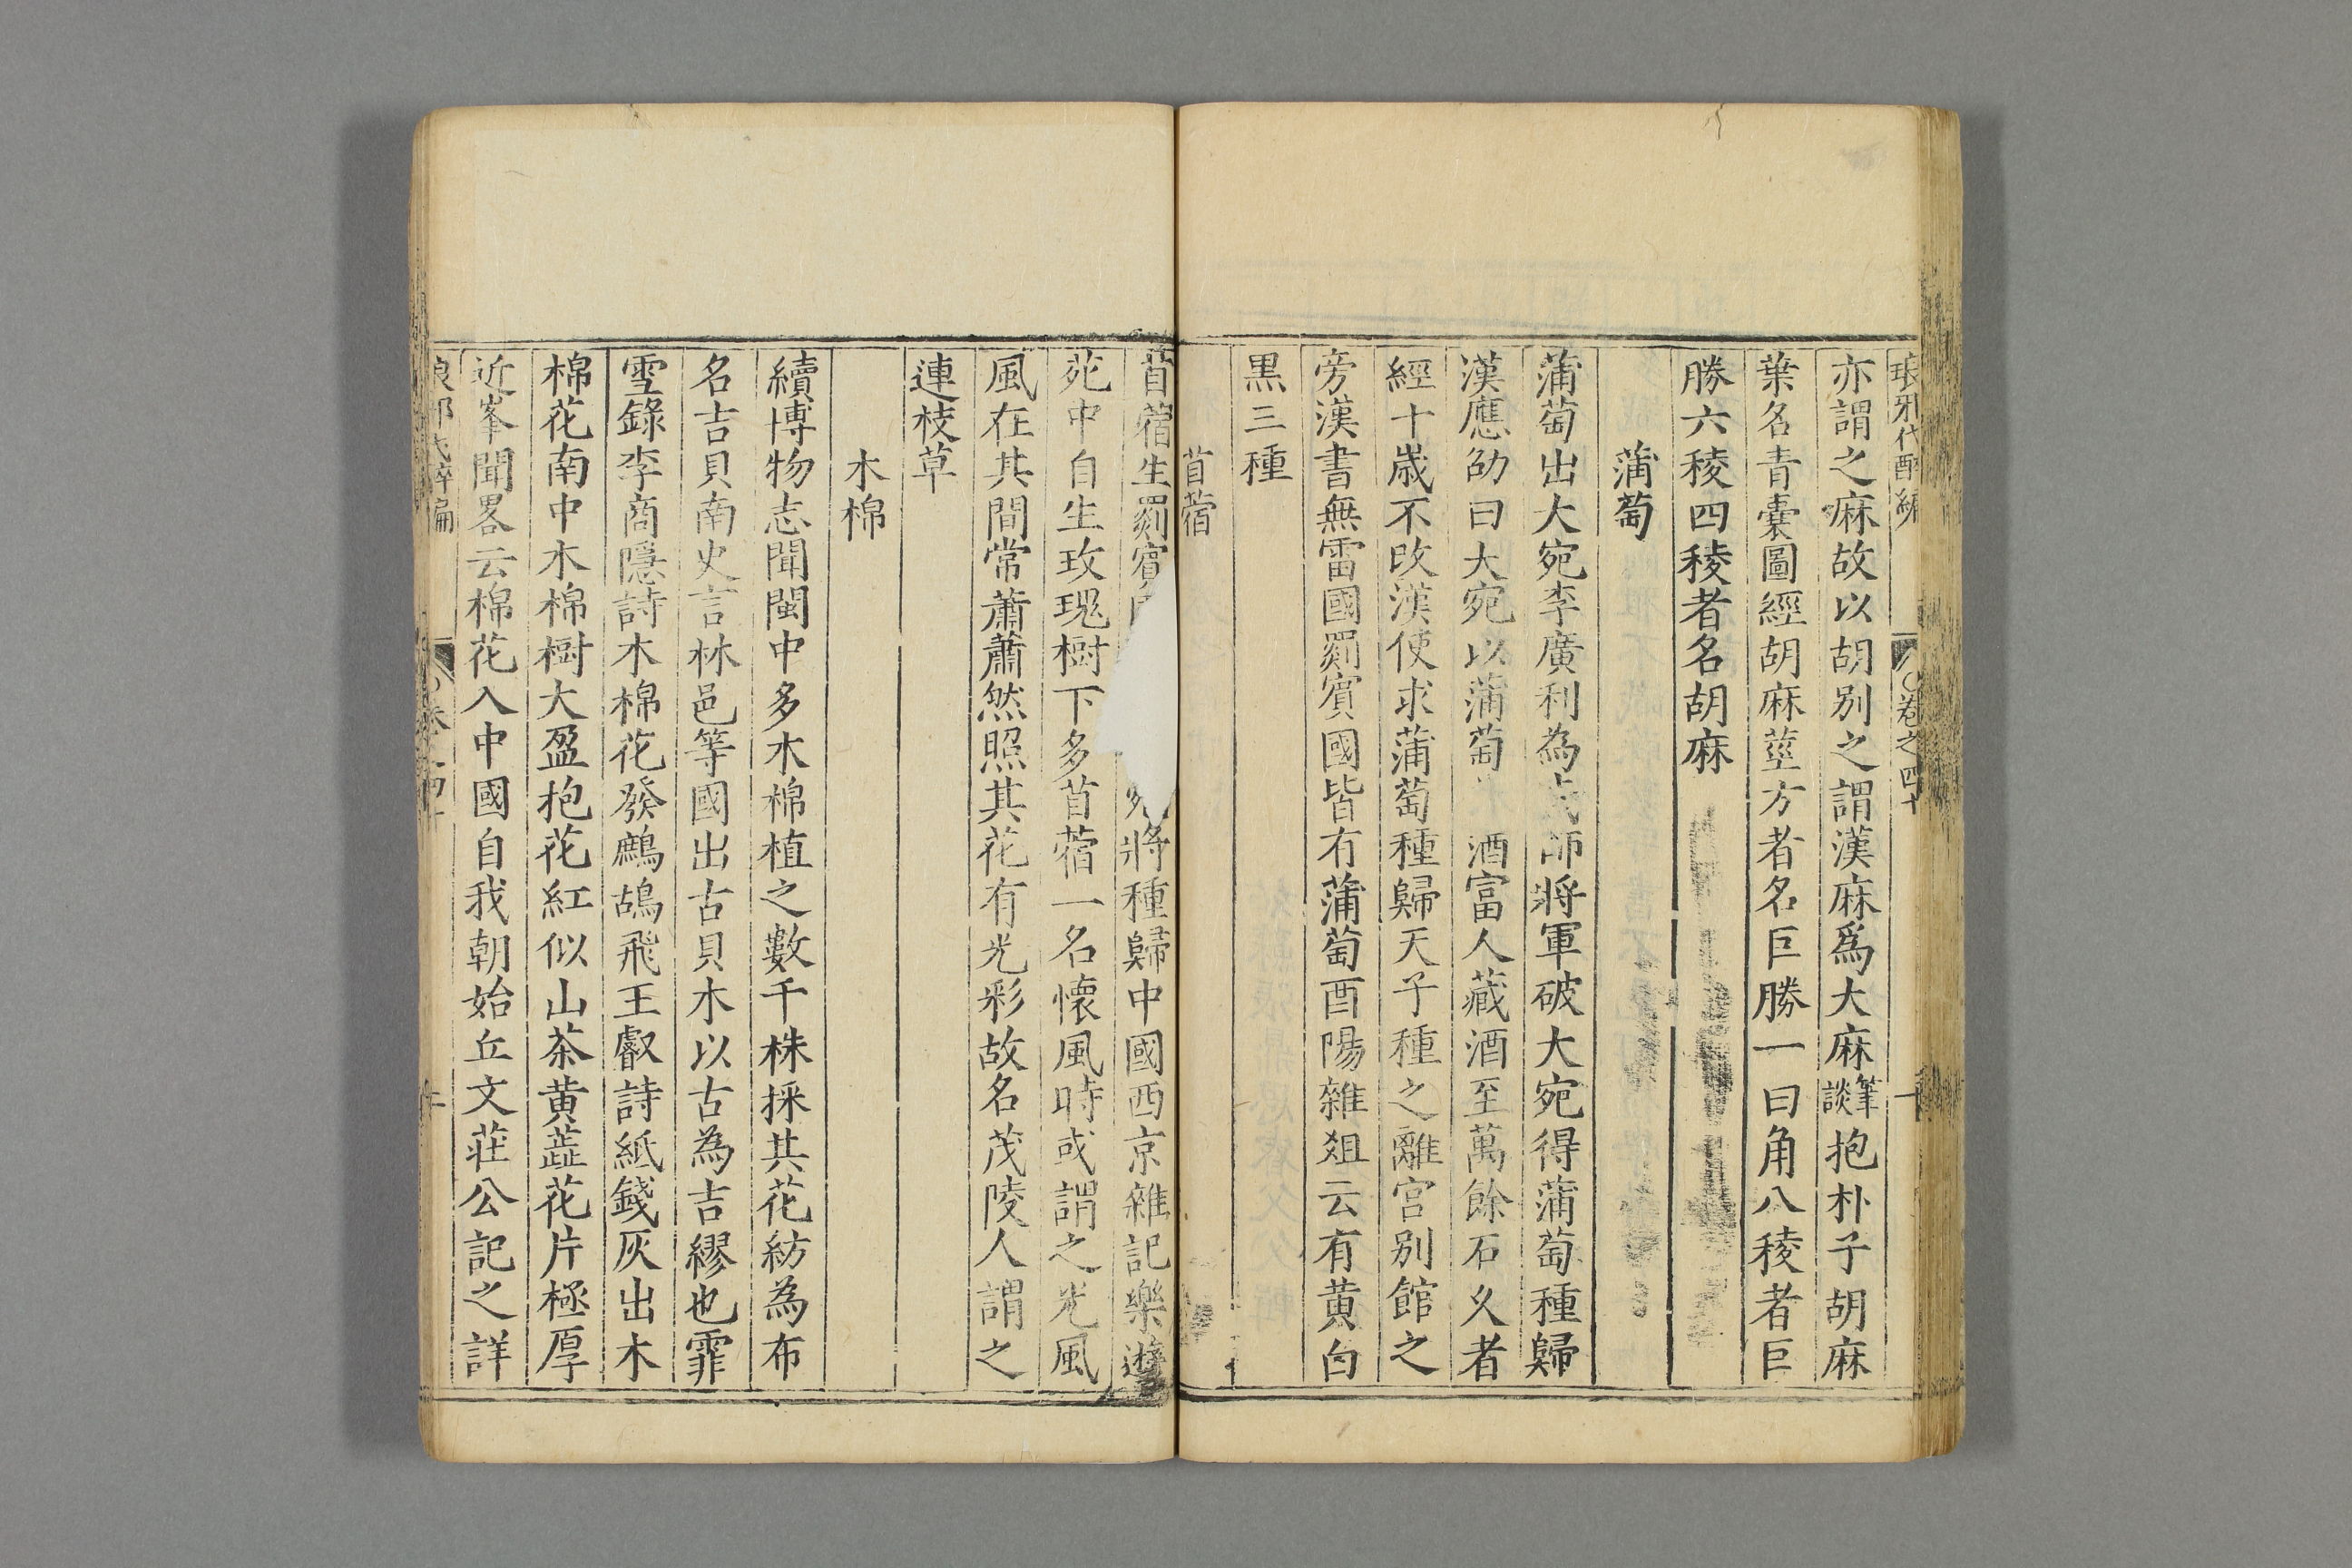 琅邪代醉編 卷之四十
亦謂之麻故以胡別之謂漢麻爲大麻筆談抱朴子胡麻
葉名青囊圖經胡麻莖方者名巨勝一曰角八稜者巨
勝六稜四稜者名胡麻
蒲萄
蒲萄出大宛李廣利為貳師將軍破大宛得蒲萄種歸
漢應劭曰大宛以蒲萄酒富人藏酒至萬餘石久者
經十歲不改漢使求蒲萄種歸天子種之離宮別館之
旁漢書無雷國罽賓國皆有蒲萄酉陽雜俎云有黄白
黒三種
苜蓿
苜蓿生罽賓將種歸中國西京雜記樂遊
苑中自生玫瑰樹下多苜蓿一名懷風時或謂之光風
風在其間常蕭蕭然照其花有光彩故名茂陵人謂之
連枝草
木棉
續博物志聞閩中多木棉植之數千株採其花紡為布
名吉貝南史言林邑等國出古貝木以古為吉繆也霏
雪錄李商隱詩木棉花發鷓鴣飛王叡詩紙錢灰出木
棉花南中木棉樹大盈抱花紅似山茶黄蕋花片極厚
近峯聞畧云棉花入中國自我朝始丘文莊公記之詳